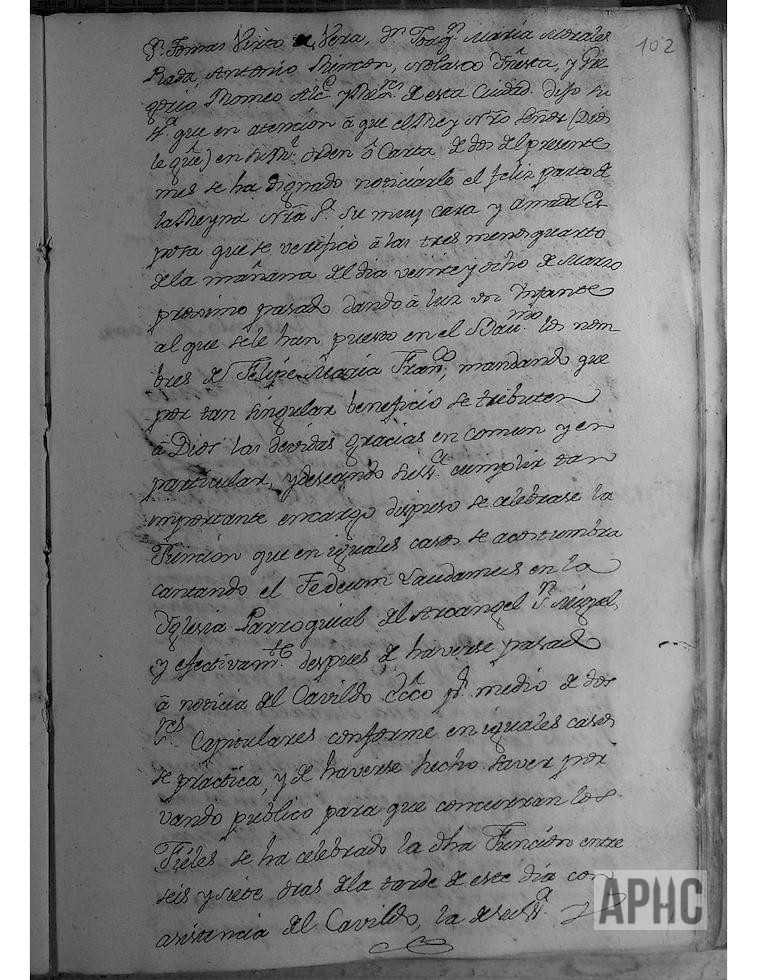 102
Dn. Tomas Virto de Vera, dn Joaqn. María Morales
Rada, Antonio Rincon, Nolasco Yñesta, y Gre
gorio Romeo Alce y Rexres de esta Ciudad. dijo su
Sa. que en atencion â que el Rey Nrô Señor (Dios
le gue) en su Rl. orden ô Carta de dos del presente
mes se ha dignado noticiarle el feliz parto de
la Reyna Nrâ Sa. su muy cara y amada Es
posa que se verificò â las tres menos quarto
de la mañana del dia veinte y ocho de Marzo
proximo pasado dando â luz un Ynfante
al que se le han puesto en el Baumo los nom
bres de Felipe Maria Franco, mandando que
por tan singular beneficio se tributen
â Dios las devidas gracias en comun y en
particular, y deseando su Sa. cumplir tan
importante encargo dispuso se celebrase la
Funcion que en iguales casos se acostumbra
cantando el Tedeum Laudamus en la
Yglesia Parroquial del Arcangel Sn. Miguel,
y efectivamte. despues de haverse pasado
â noticia del Cavildo ecco pr. medio de dos
Sres. Capitulares conforme en iguales casos
se practica, y de haverse hecho saver por
vando publico para que concurran los
Fieles se ha celebrado la dha Funcion entre
seis y siete oras de la tarde de este dia con
asistencia del Cavildo, la de su Sa.
APHC